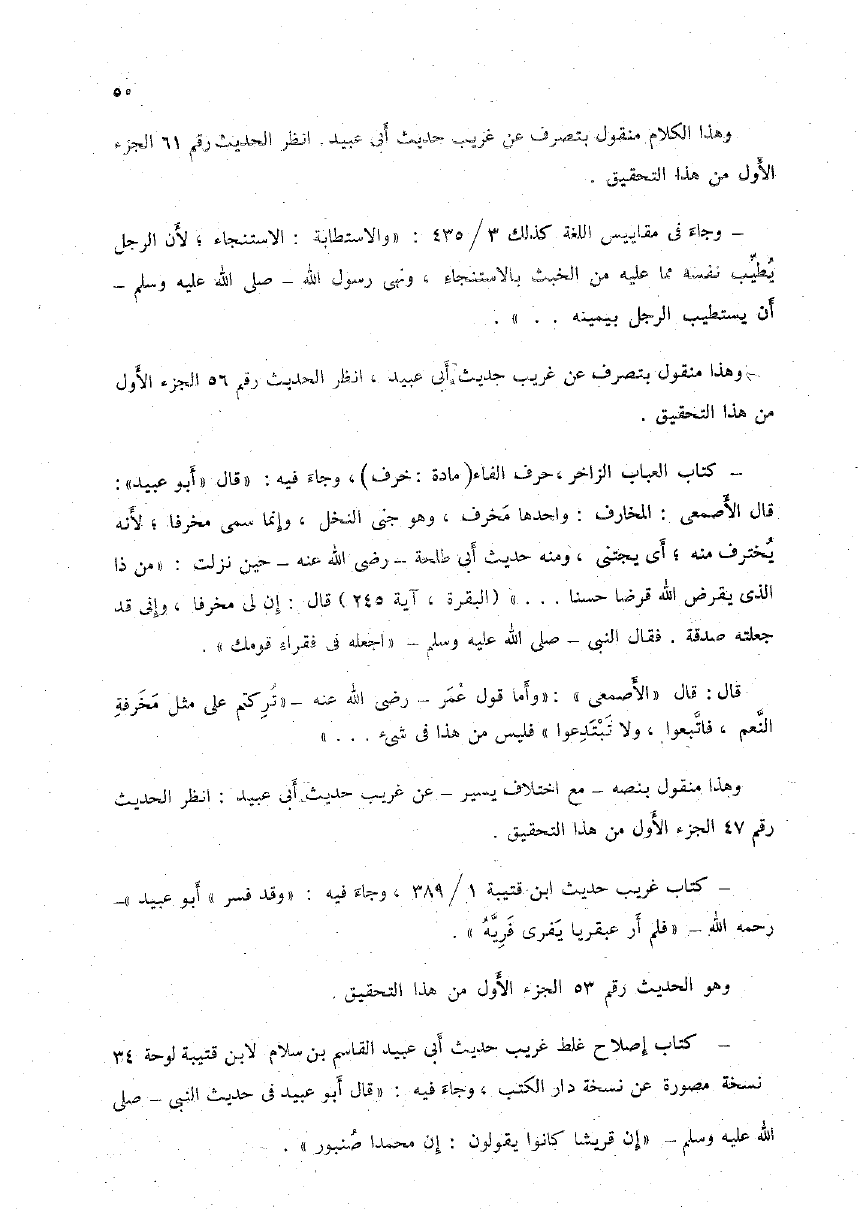 ٥٥
وهذا الكلام منقول بتصرف عن غريب حديث أَبى عبيد. انظر الحديث رقم ٦١ الجزء
الأَول من هذا التحقيق .
– وجاءَ فى مقاييس اللغة كذلك ٣ / ٤٣٥ : «والاستطابة : الاستنجاء ؛ لأَن الرجل
يُطيِّب نفسه مما عليه من الخبث بالاستنجاءِ ، ونهى رسول الله – صلى الله عليه وسلم –
أَن يستطيب الرجل بيمينه . . . » .
– وهذا منقول بتصرف عن غريب حديث أَبى عبيد ، انظر الحديث رقم ٥٦ الجزء الأَول
من هذا التحقيق .
– كتاب العباب الزاخر ،حرف الفاء(مادة : خرف) ، وجاءَ فيه : «قال «أَبو عبيد» :
قال الأَصمعى : المخارف : واحدها مَخرف ، وهو جنى النخل ، وإنما سمى مخرفا ؛ لأَنه
يُخترف منه ؛ أَى يجتنى ، ومنه حديث أَبى طلحة – رضى الله عنه – حين نزلت : «من ذا
الذى يقرض الله قرضا حسنا . . . » (البقرة ، آية ٢٤٥) قال : إن لى مخرفا ، وإنى قد
جعلته صدقة . فقال النبى – صلى الله عليه وسلم – «اجعله فى فقراءِ قومك » .
قال : قال «الأَصمعى » : «وأَما قول عُمَر – رضى الله عنه – «تُرِكتم على مثل مَخَرفةِ
النَّعم ، فاتَّبعوا ، ولا تَبْتَدِعوا » فليس من هذا فى شىء . . . »
وهذا منقول بنصه – مع اختلاف يسير – عن غريب حديث أَبى عبيد : انظر الحديث
رقم ٤٧ الجزء الأَول من هذا التحقيق .
– كتاب غريب حديث ابن قتيبة ١ / ٣٨٩ ، وجاءَ فيه : «وقد فسر » أَبو عبيد »–
رحمه الله – «فلم أَر عبقريا يَفرى فَرِيَّهُ » .
وهو الحديث رقم ٥٣ الجزء الأَول من هذا التحقيق .
– كتاب إصلاح غلط غريب حديث أَبى عبيد القاسم بن سلام لابن قتيبة لوحة ٣٤
نسخة مصورة عن نسخة دار الكتب ، وجاءَ فيه : «قال أَبو عبيد فى حديث النبى – صلى
الله عليه وسلم – «إن قريشا كانوا يقولون : إن محمدا صُنبور » .